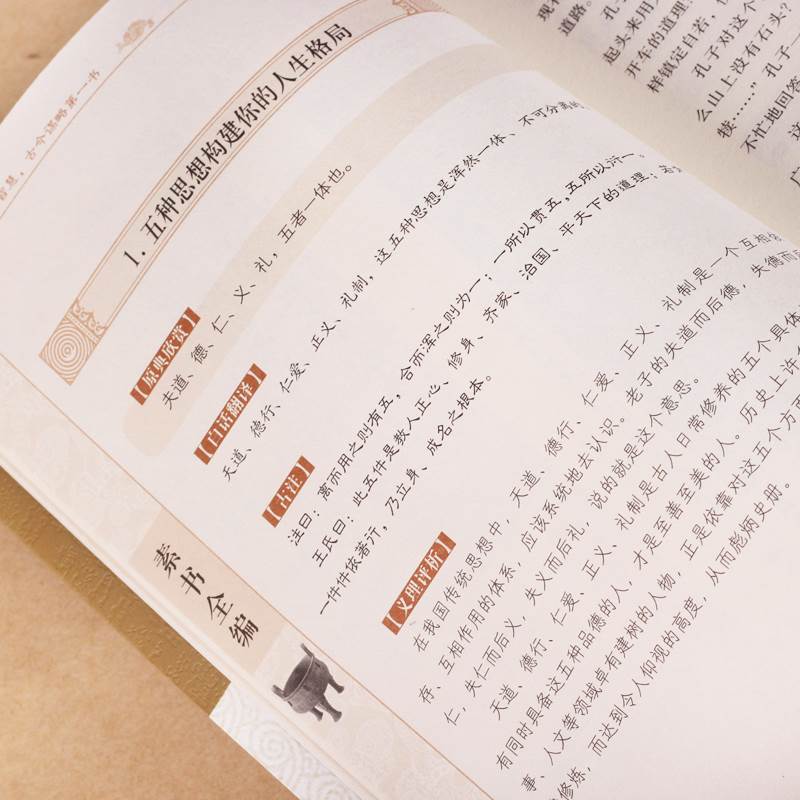 智慧，古今谋略第一书
1. 五种思想构建你的人生格局
【原典欣赏】
夫道、德、仁、义、礼，五者一体也。
【白话翻译】
天道、德行、仁爱、正义、礼制，这五种思想是浑然一体、不可分离的
【古注】
注曰：离而用之则有五，合而浑之则为一；一所以贯五，五所以衍一。
王氏曰：此五件是教人正心、修身、齐家、治国、平天下的道理；若
一件件依著行，乃立身、成名之根本。
【义理评析】
在我国传统思想中，天道、德行、仁爱、正义、礼制是一个互相
存、互相作用的体系，应该系统地去认识。老子的失道而后德，失德而
仁，失仁而后义，失义而后礼，说的就是这个意思。
天道、德行、仁爱、正义、礼制是古人日常修养的五个具体
有同时具备这五种品德的人，才是至善至美的人。历史上许
事、人文等领域卓有建树的人物，正是依靠对这五个方面
修炼，而达到令人仰视的高度，从而彪炳史册。
素书全编
现在
道路。
孔子
起头来用
开车的道理
样镇定自若，
孔子对这个
么山上没有石头？
犊……”孔子一
不忙地回答
这
广